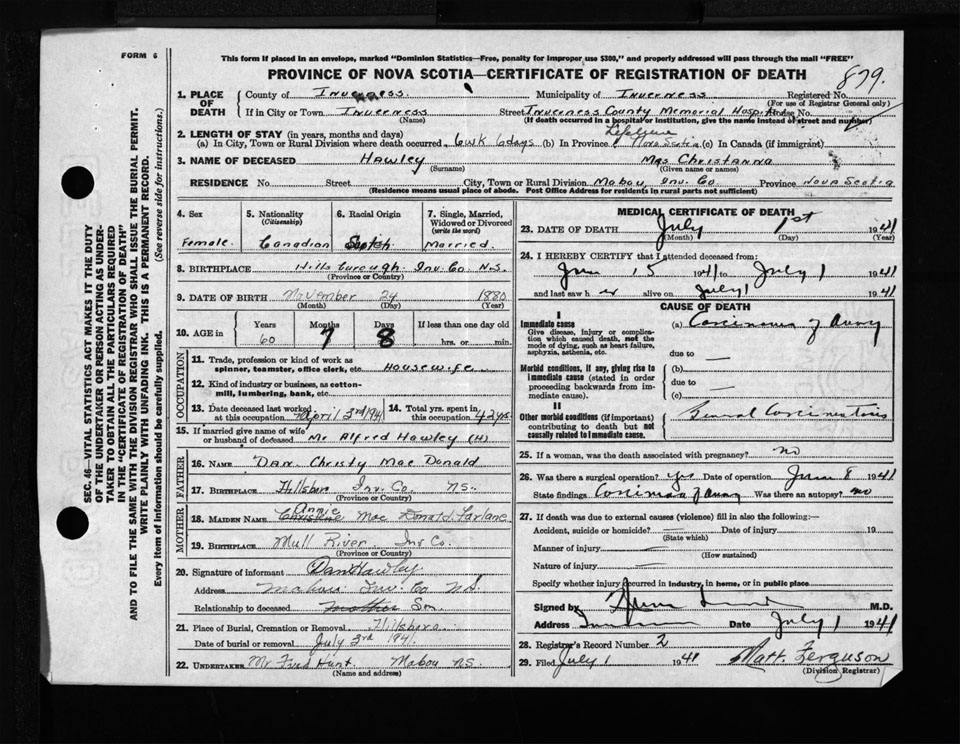 FORM 6
This form if placed in an envelope, marked "Dominion Statistics—Free, penalty for improper use $300," and properly addressed will pass through the mail "FREE"
PROVINCE OF NOVA SCOTIA—CERTIFICATE OF REGISTRATION OF DEATH
879.
1. PLACE OF DEATH
County of Inverness. Municipality of Inverness Registered No.
(For use of Registrar General only)
If in City or Town Inverness Street Inverness County Memorial Hospital House No.
(Name) (If death occurred in a hospital or institution, give the name instead of street and number)
2. LENGTH OF STAY (in years, months and days) Lifetime
(a) In City, Town or Rural Division where death occurred. 6wk 6days (b) In Province Nova Scotia (c) In Canada (if immigrant)
3. NAME OF DECEASED Hawley Mrs Christanna
(Surname) (Given name or names)
RESIDENCE No. Street City, Town or Rural Division Mabou, Inv. Co Province Nova Scotia
(Residence means usual place of abode. Post Office Address for Residents in rural parts not sufficient)
4. Sex 5. Nationality (Citizenship) 6. Racial Origin 7. Single, Married, Widowed or Divorced (write the word)
Female. Canadian Scotch Married.
8. BIRTHPLACE Hillsborough. Inv. Co. N.S.
(Province or Country)
9. DATE OF BIRTH November 24 1880
(Month) (Day) (Year)
10. AGE in Years Months Days If less than one day old
60 7 8 hrs. or min.
OCCUPATION
11. Trade, profession or kind of work as spinner, teamster, office clerk, etc. Housewife
12. Kind of industry or business, as cotton-mill, lumbering, bank, etc.
13. Date deceased last worked at this occupation April 3rd 1941 14. Total yrs. spent in this occupation 42 yrs.
15. If married give name of wife or husband of deceased Mr Alfred Hawley (H)
FATHER
16. NAME Dan. Christy Mac Donald
17. BIRTHPLACE Hillsboro Inv. Co NS.
(Province or Country)
MOTHER
Annie
18. MAIDEN NAME Christine Mac Donald Farlane
19. BIRTHPLACE Mull River Inv Co.
(Province or Country)
20. Signature of informant Dan Hawley
Address Mabou Inv. Co N.S.
Relationship to deceased Mother Son
21. Place of Burial, Cremation or Removal Hillsboro
Date of burial or removal July 3rd 1941
22. UNDERTAKER Mr Fred Hunt Mabou NS.
(Name and address)
MEDICAL CERTIFICATE OF DEATH
23. DATE OF DEATH July 1st 1941
(Month) (Day) (Year)
24. I HEREBY CERTIFY that I attended deceased from:
June 15 1941 to July 1 1941
and last saw her alive on July 1 1941
CAUSE OF DEATH
I
Immediate cause (a) Carcinoma of Ovary
Give disease, injury or complication which caused death, not the mode of dying, such as heart failure, asphyxia, asthenia, etc. due to
Morbid conditions, if any, giving rise to immediate cause (stated in order proceeding backwards from immediate cause). (b)
due to
(c)
II
Other morbid conditions (if important) contributing to death but not causally related to immediate cause. General
25. If a woman, was the death associated with pregnancy? no
26. Was there a surgical operation? yes Date of operation June 8 1941
State findings Carcinoma of Ovary Was there an autopsy? no
27. If death was due to external causes (violence) fill in also the following:—
Accident, suicide or homicide? Date of injury 19
(State which)
Manner of injury
(How sustained)
Nature of injury
Specify whether injury occurred in industry, in home, or in public place
Signed by M.D.
Address Date July 1 1941
28. Registrar's Record Number 2
29. Filed July 1 1941 Matt. Ferguson
(Division Registrar)
SEC. 46—VITAL STATISTICS ACT MAKES IT THE DUTY
OF THE UNDERTAKER OR PERSON ACTING AS UNDER-
TAKER TO OBTAIN ALL THE PARTICULARS REQUIRED
IN THE "CERTIFICATE OF REGISTRATION OF DEATH"
AND TO FILE THE SAME WITH THE DIVISION REGISTRAR WHO SHALL ISSUE THE BURIAL PERMIT.
WRITE PLAINLY WITH UNFADING INK. THIS IS A PERMANENT RECORD.
Every item of information should be carefully supplied. (See reverse side for instructions.)